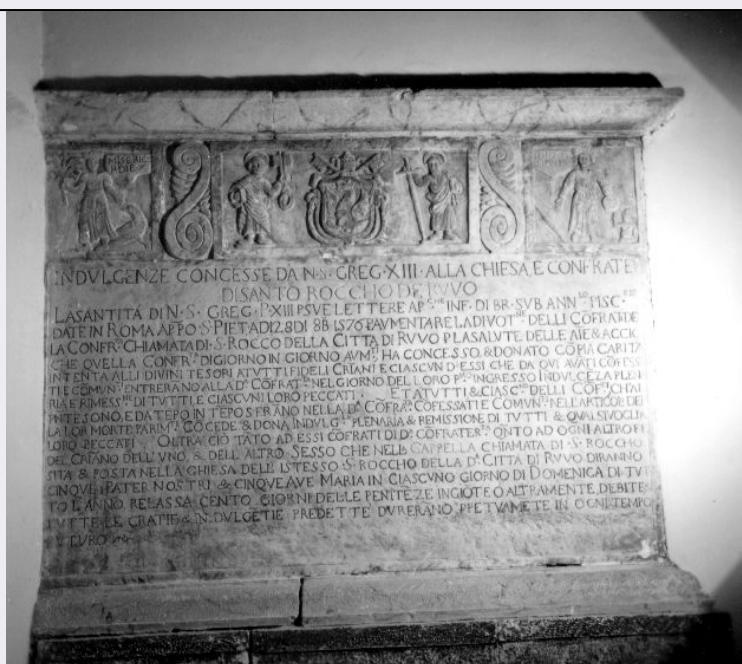 MISERIC
ORDIE
INDVLGENZE CONCESSE DA N·S· GREG·XIII·ALLA CHIESA, E CONFRATE
DI SANTO ROCCHO DE RVVO
LA SANTITA DI N·S· GREG· P·XIII P SVE LETTERE AP INF· DI BR· SVB ANN
DATE IN ROMA APPO S· PIET A DI 28 DI 8B 1576 P AVMENTARE LA DIVOT DELLI COFRATI DE
LA CONFR· CHIAMATA DI·S·ROCCO DELLA CITTA DI RVVO P LA SALVTE DELLE AIE & ACCIO
CHE QVELLA CONFR· DI GIORNO IN GIORNO AVM HA CONCESSO, & DONATO CO PIA CARITA
INTENTA ALLI DIVINI TESORI A TVTTI FIDELI CRIANI E CIASCVN D ESSI CHE DA QVI AVATI COFESS
TI E COMVN ENTRERANO ALLA D· COFRAT· NEL GIORNO DEL LORO P INGRESSO INDVLGEZA PLEN
RIA E RIMESS DI TVTTI E CIASCVNI LORO PECCATI· E TA TVTTI & CIASC DELLI COF
SONO, E DA TEPO IN TEPO SERANO NELLA D· COFRA· COFESSATI E COMVN· NELL ARTICOR DE
LA LOR MORTE PARIM COCEDE & DONA INDVLG PLENARIA & REMISSIONE DI TVTTI & QVALSIVOGLIA
LORO PECCATI OLTRA CIO TATO AD ESSI COFRATI DI D· COFRATER QNTO AD OGNI ALTRO FI
DEL CRIANO DELL VNO & DELL ALTRO SESSO CHE NELLA CAPPELLA CHIAMATA DI·S·ROCCHO
SITA & POSTA NELLA CHIESA DELL ISTESSO·S·ROCCHO DELLA D· CITTA DI RVVO DIRANNO
CINQVE PATER NOSTRI & CINQVE AVE MARIA IN CIASCVNO GIORNO DI DOMENICA DI TVT
TO L ANNO, RELASSA CENTO GIORNI DELLE PENITEZE INGIOTE O ALTRAMENTE DEBITE·
TVTTE LE GRATIE & INDVLGETIE PREDETTE DVRERANO PPETVAMETE IN OGNI TEMPO
FVTVRO